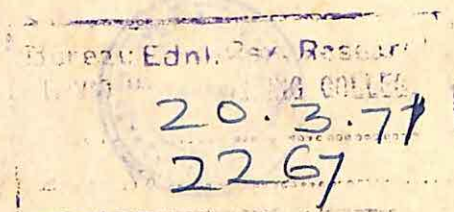 Bureau Ednl. Psy. Research
TRAINING COLLEGE
20.3.77
2267